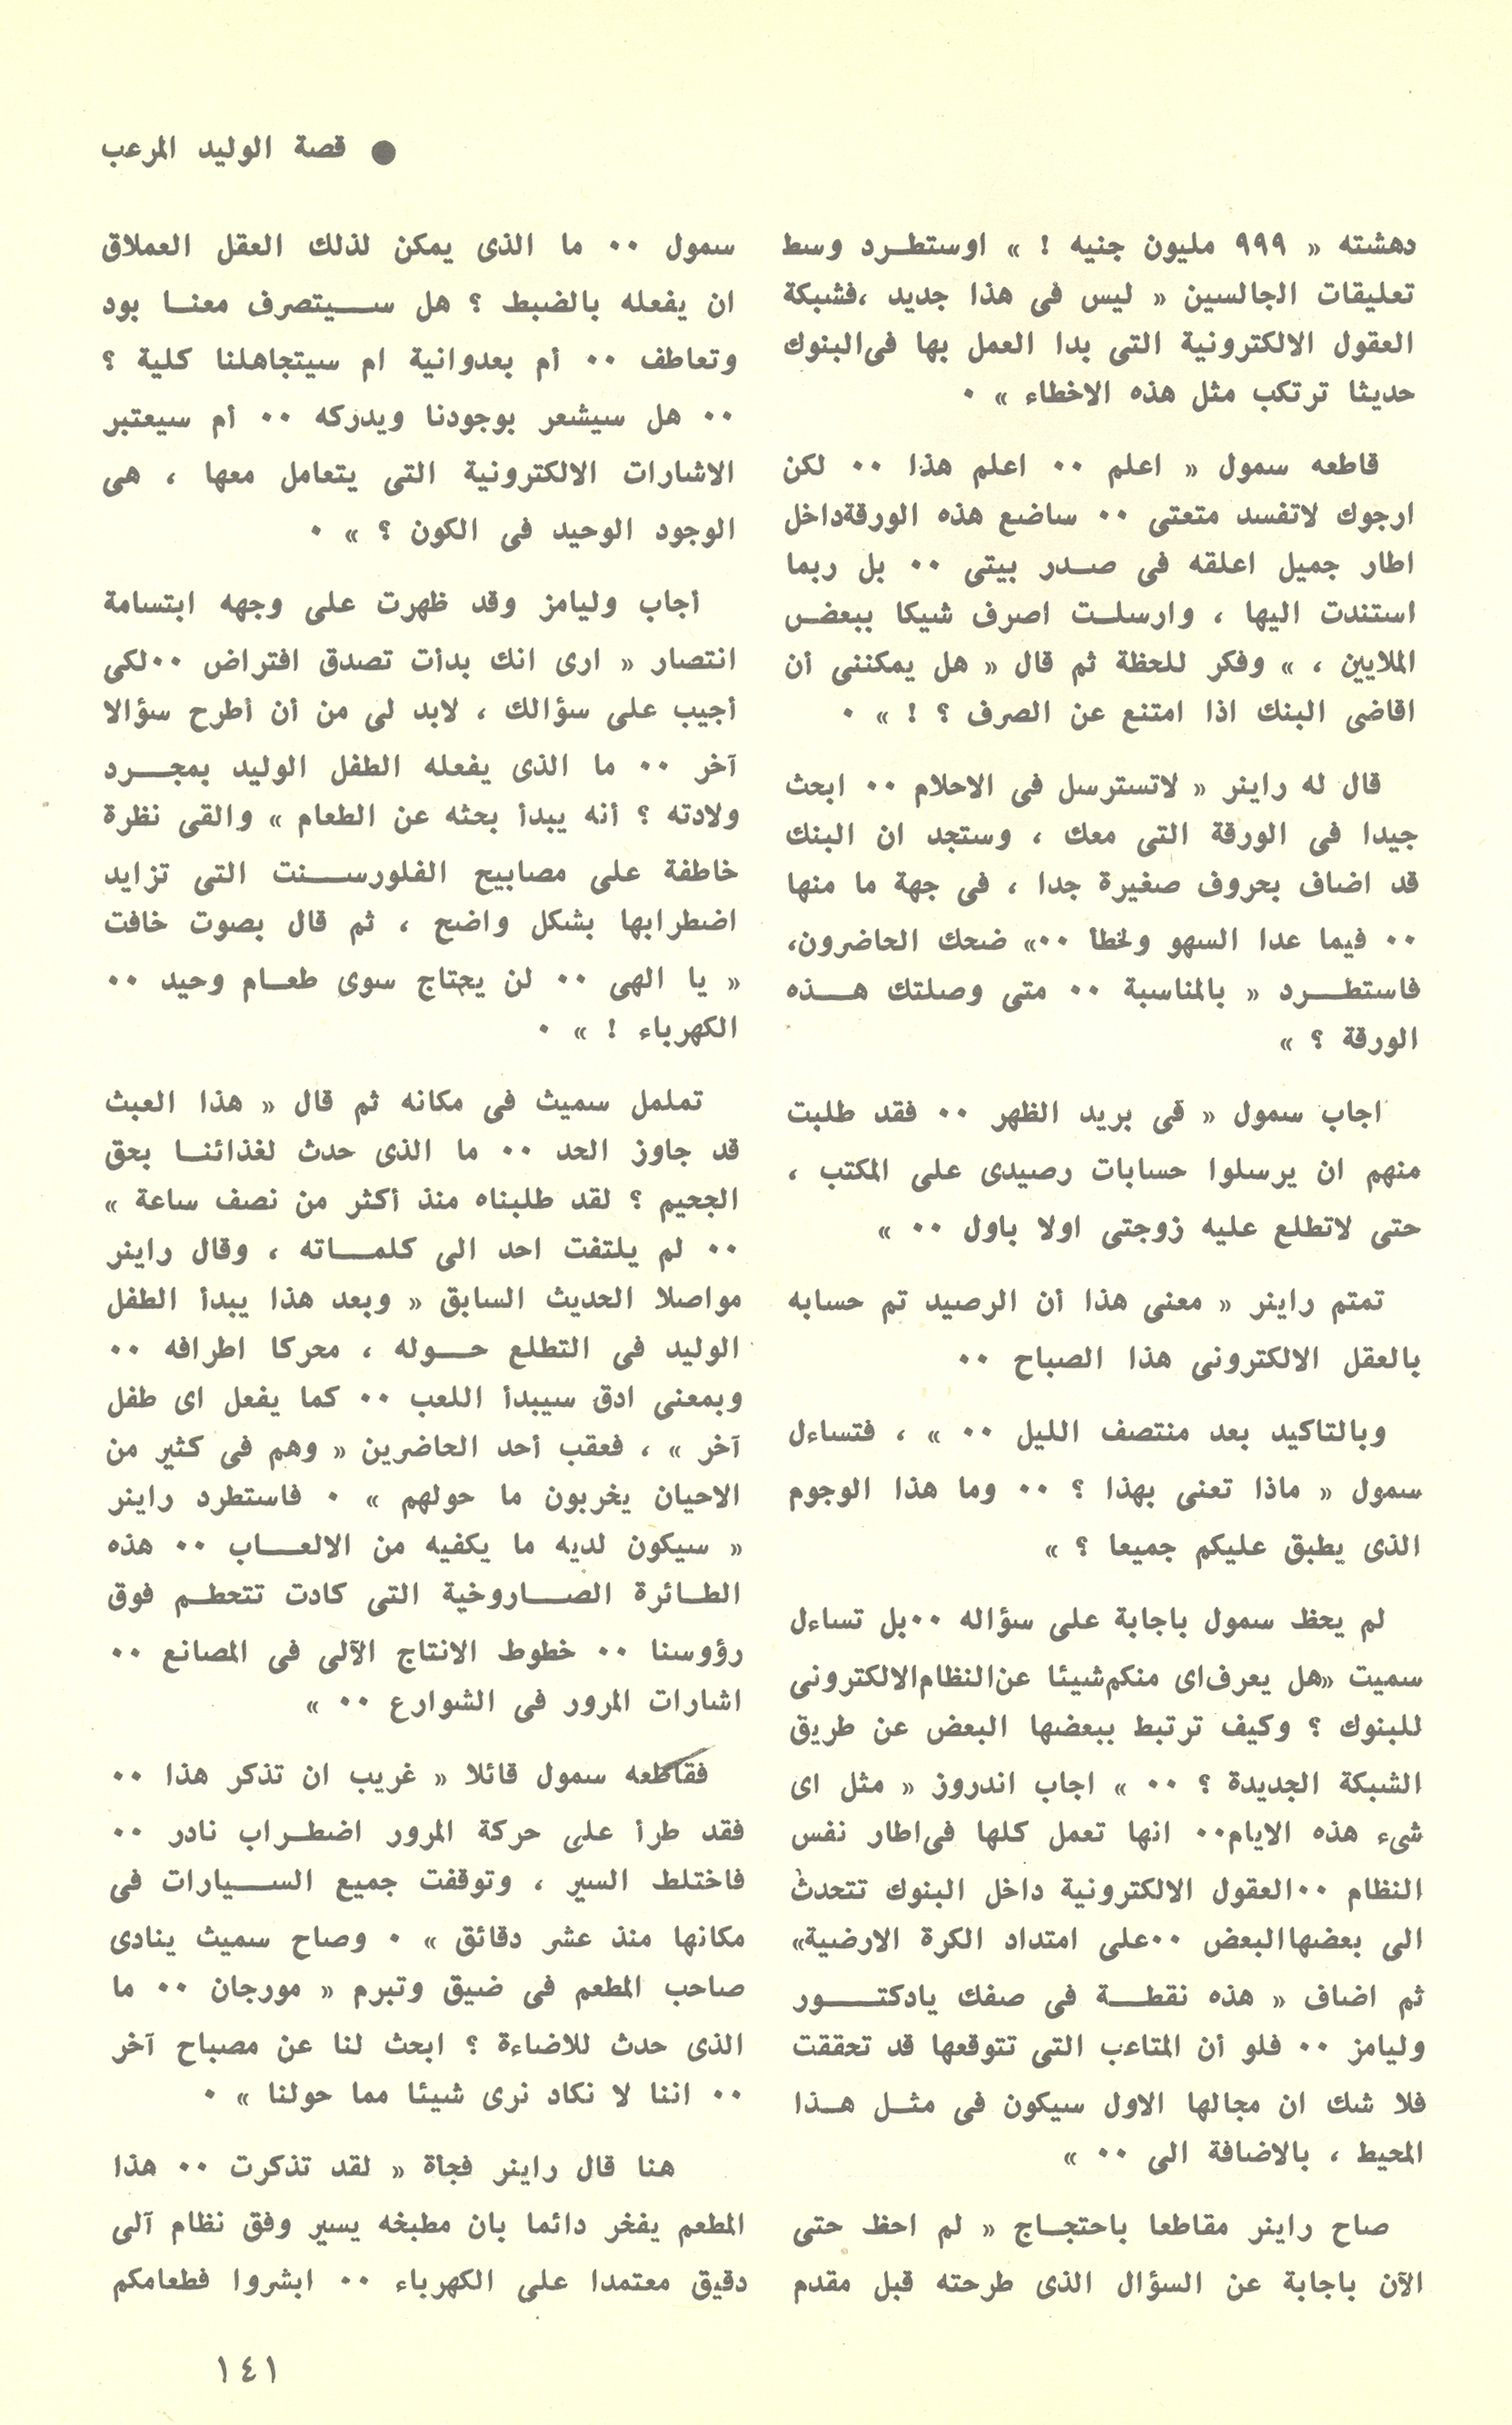 ● قصة الوليد المرعب
دهشته « ٩٩٩ مليون جنيه ! » اوستطرد وسط
تعليقات الجالسين « ليس فى هذا جديد ،فشبكة
العقول الالكترونية التى بدا العمل بها فى البنوك
حديثا ترتكب مثل هذه الاخطاء » ٠
قاطعه سمول « اعلم ٠٠ اعلم هذا ٠٠ لكن
ارجوك لاتفسد متعتى ٠٠ ساضع هذه الورقة داخل
اطار جميل اعلقه فى صدر بيتى ٠٠ بل ربما
استندت اليها ، وارسلت اصرف شيكا ببعض
الملايين ، » وفكر للحظة ثم قال « هل يمكننى أن
اقاضى البنك اذا امتنع عن الصرف ؟ ! » ٠
قال له راينر « لاتسترسل فى الاحلام ٠٠ ابحث
جيدا فى الورقة التى معك ، وستجد ان البنك
قد اضاف بحروف صغيرة جدا ، فى جهة ما منها
٠٠ فيما عدا السهو ولخطأ ٠٠» ضحك الحاضرون،
فاستطرد « بالمناسبة ٠٠ متى وصلتك هذه
الورقة ؟ »
اجاب سمول « فى بريد الظهر ٠٠ فقد طلبت
منهم ان يرسلوا حسابات رصيدى على المكتب ،
حتى لاتطلع عليه زوجتى اولا باول ٠٠ »
تمتم راينر « معنى هذا أن الرصيد تم حسابه
بالعقل الالكترونى هذا الصباح ٠٠
وبالتاكيد بعد منتصف الليل ٠٠ » ، فتساءل
سمول « ماذا تعنى بهذا ؟ ٠٠ وما هذا الوجوم
الذى يطبق عليكم جميعا ؟ »
لم يحظ سمول باجابة على سؤاله ٠٠بل تساءل
سميت «هل يعرف اى منكم شيئا عن النظام الالكترونى
للبنوك ؟ وكيف ترتبط ببعضها البعض عن طريق
الشبكة الجديدة ؟ ٠٠ » اجاب اندروز « مثل اى
شىء هذه الايام٠٠ انها تعمل كلها فى اطار نفس
النظام ٠٠العقول الالكترونية داخل البنوك تتحدث
الى بعضها البعض ٠٠على امتداد الكرة الارضية»
ثم اضاف « هذه نقطة فى صفك يادكتور
وليامز ٠٠ فلو أن المتاعب التى تتوقعها قد تحققت
فلا شك ان مجالها الاول سيكون فى مثل هذا
المحيط ، بالاضافة الى ٠٠ »
صاح راينر مقاطعا باحتجاج « لم احظ حتى
الآن باجابة عن السؤال الذى طرحته قبل مقدم
سمول ٠٠ ما الذى يمكن لذلك العقل العملاق
ان يفعله بالضبط ؟ هل سيتصرف معنا بود
وتعاطف ٠٠ أم بعدوانية ام سيتجاهلنا كلية ؟
٠٠ هل سيشعر بوجودنا ويدركه ٠٠ أم سيعتبر
الاشارات الالكترونية التى يتعامل معها ، هى
الوجود الوحيد فى الكون ؟ » ٠
أجاب وليامز وقد ظهرت على وجهه ابتسامة
انتصار « ارى انك بدأت تصدق افتراض ٠٠لكى
أجيب على سؤالك ، لابد لى من أن أطرح سؤالا
آخر ٠٠ ما الذى يفعله الطفل الوليد بمجرد
ولادته ؟ أنه يبدأ بحثه عن الطعام » والقى نظرة
خاطفة على مصابيح الفلورسنت التى تزايد
اضطرابها بشكل واضح ، ثم قال بصوت خافت
« يا الهى ٠٠ لن يحتاج سوى طعام وحيد ٠٠
الكهرباء ! » ٠
تململ سميث فى مكانه ثم قال « هذا العبث
قد جاوز الحد ٠٠ ما الذى حدث لغذائنا بحق
الجحيم ؟ لقد طلبناه منذ أكثر من نصف ساعة »
٠٠ لم يلتفت احد الى كلماته ، وقال راينر
مواصلا الحديث السابق « وبعد هذا يبدأ الطفل
الوليد فى التطلع حوله ، محركا اطرافه ٠٠
وبمعنى ادق سيبدأ اللعب ٠٠ كما يفعل اى طفل
آخر » ، فعقب أحد الحاضرين « وهم فى كثير من
الاحيان يخربون ما حولهم » ٠ فاستطرد راينر
« سيكون لديه ما يكفيه من الالعاب ٠٠ هذه
الطائرة الصاروخية التى كادت تتحطم فوق
رؤوسنا ٠٠ خطوط الانتاج الآلى فى المصانع ٠٠
اشارات المرور فى الشوارع ٠٠ »
فقاطعه سمول قائلا « غريب ان تذكر هذا ٠٠
فقد طرأ على حركة المرور اضطراب نادر ٠٠
فاختلط السير ، وتوقفت جميع السيارات فى
مكانها منذ عشر دقائق » ٠ وصاح سميث ينادى
صاحب المطعم فى ضيق وتبرم « مورجان ٠٠ ما
الذى حدث للاضاءة ؟ ابحث لنا عن مصباح آخر
٠٠ اننا لا نكاد نرى شيئا مما حولنا » ٠
هنا قال راينر فجأة « لقد تذكرت ٠٠ هذا
المطعم يفخر دائما بان مطبخه يسير وفق نظام آلى
دقيق معتمدا على الكهرباء ٠٠ ابشروا فطعامكم
١٤١